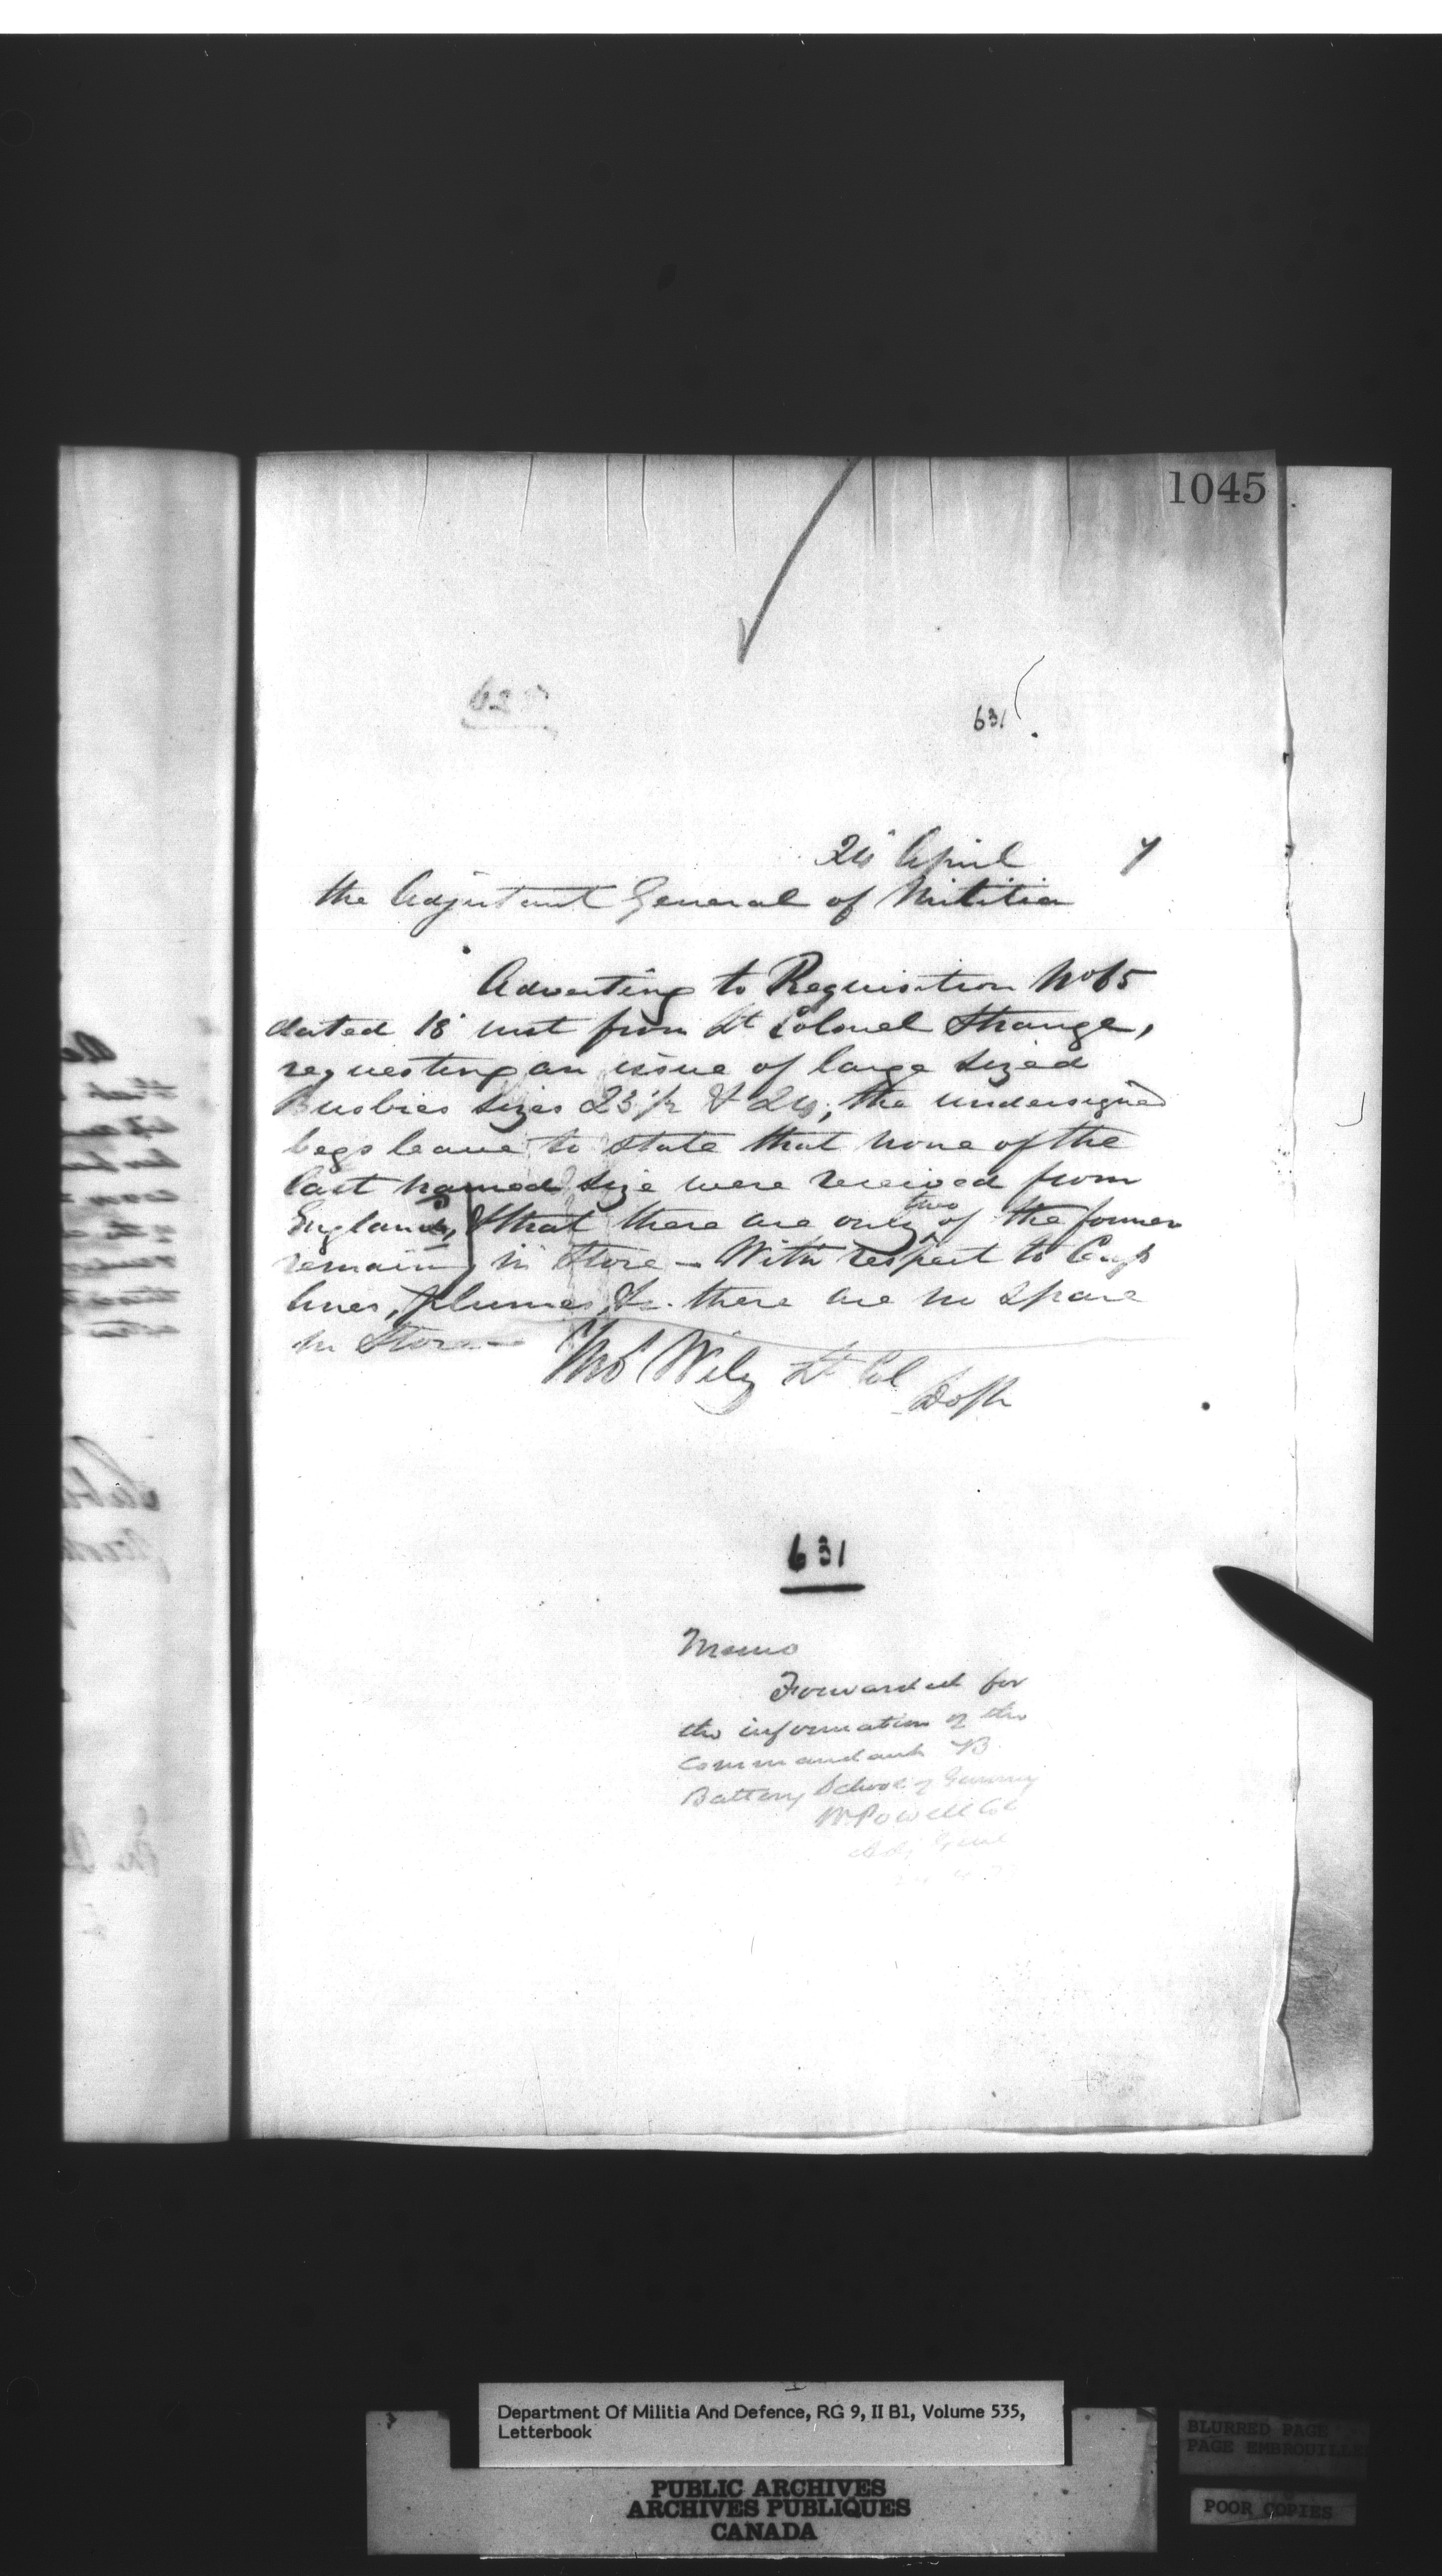 1045
631
24 April 7
The Adjutant General of Militia
Adverting to Requisition No 65
dated 18 inst from Lt Colonel Strange,
requesting an issue of large sized
Busbies sizes 23 1/2 & 24, the undersigned
begs leave to state that none of the
last named size were received from
England, & that there are only two of the former
remaing in Store - With respect to Cap
lines, plumes, &c. there are no spare
in Store -
Thos Wily Lt Col
631
Memo
Forwarded for
the information of the
Commandant B
Battery School of Gunnery
W Powell Col
Adj Genl
Department Of Militia And Defence, RG 9, II B1, Volume 535,
Letterbook
PUBLIC ARCHIVES
ARCHIVES PUBLIQUES
CANADA
BLURRED PAGE
PAGE EMBROUILLE
POOR COPIES